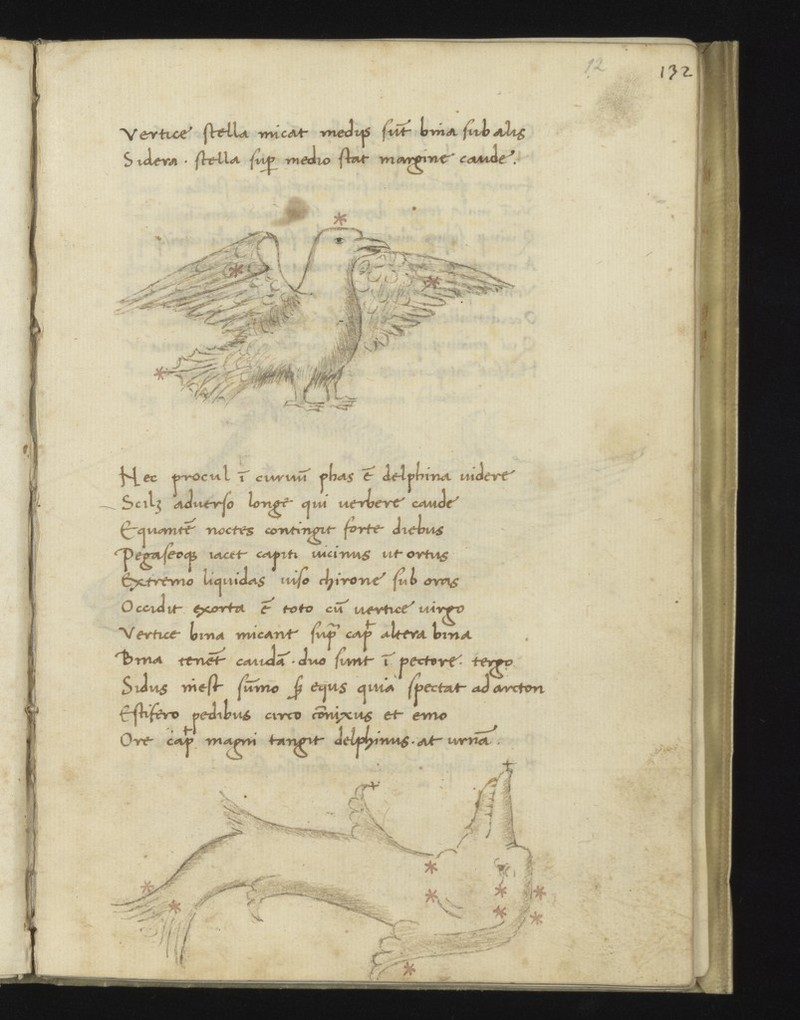 12
132
Vertice stella micat medijs sūt bina sub alis
Sidera . stella suꝑ medio stat margine caude .
Nec procul ī curuū phas ē delphina uidere
Scilꝫ aduerso longe qui uerbere caude
Equantē noctes contingit forte diebus
Pegaseoqꝫ iacet capiti uicinus ut ortus
Extremo liquidas uiso chirone sub oras
Occidit exorta ē toto cū uertice uirgo
Vertice bina micant supͣ capͭ altera bina
Bina tenēt caudā . duo sunt ī pectore . tergo
Sidus inest sūmo equs quia spectat ad arcton
Estifero pedibus circo cōnixus et emo
Ore capͭ magni tangit delphinus . at urnā .